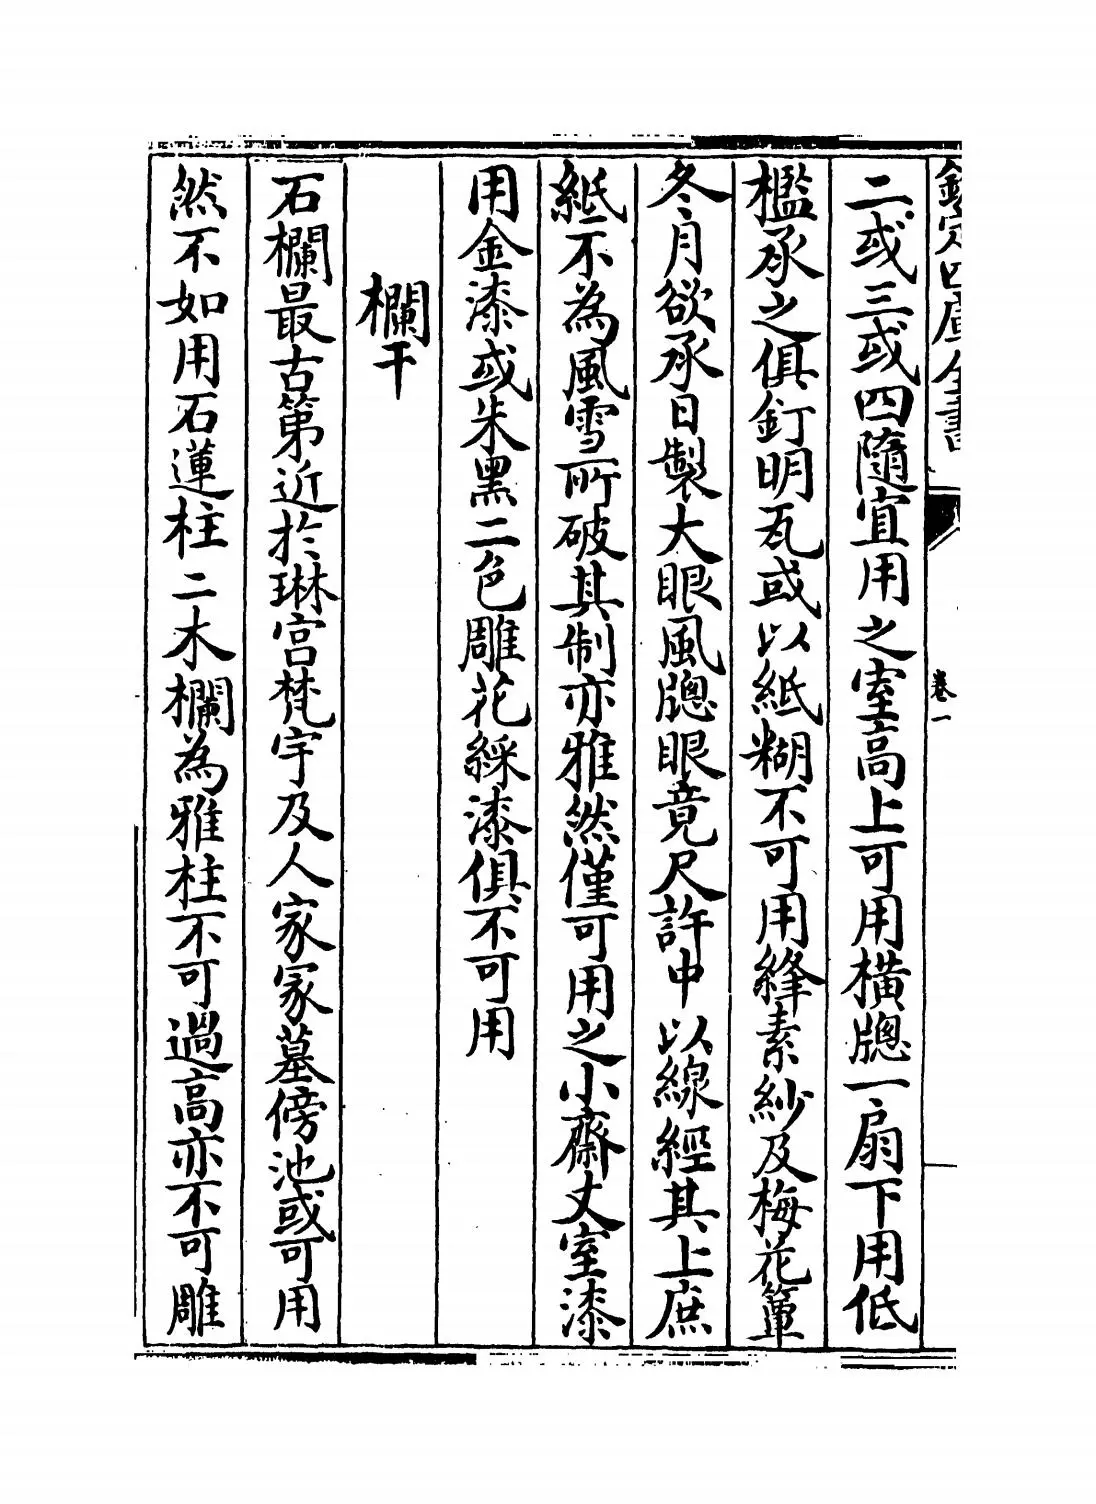 欽定四庫全書
卷一
二或三或四隨宜用之室高上可用橫牕一扇下用低
檻承之俱釘明瓦或以紙糊不可用絳素紗及梅花簟
冬月欲承日製大眼風牕眼竟尺許中以線經其上庶
紙不為風雪所破其制亦雅然僅可用之小齋丈室漆
用金漆或朱黑二色雕花綵漆俱不可用
欄干
石欄最古第近於琳宮梵宇及人家冢墓傍池或可用
然不如用石蓮柱二木欄為雅柱不可過高亦不可雕